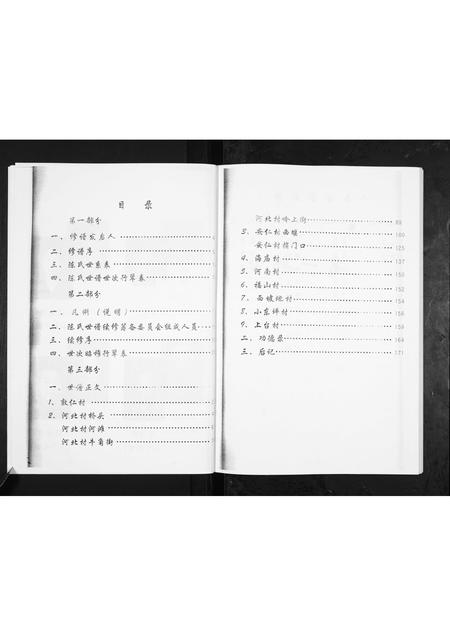 目 录
第一部分
一、修谱发启人
二、修谱序
三、陈氏世系表
四、陈氏世谱世次行第表
第二部分
一、凡例（说明）
二、陈氏世谱续修筹备委员会组成人员
三、续修序
四、世次昭穆行第表
第三部分
一、世谱正文
1、敦仁村
2、河北村桥头
河北村河滩
河北村牛角街
河北村岭上街 89
3、安仁村西堰 100
安仁村槽门口 125
4、海庙村 137
5、河南村 150
6、福山村 152
7、西坡地村 154
8、小东坪村 156
9、上台村 159
二、功德录 164
三、后记 171